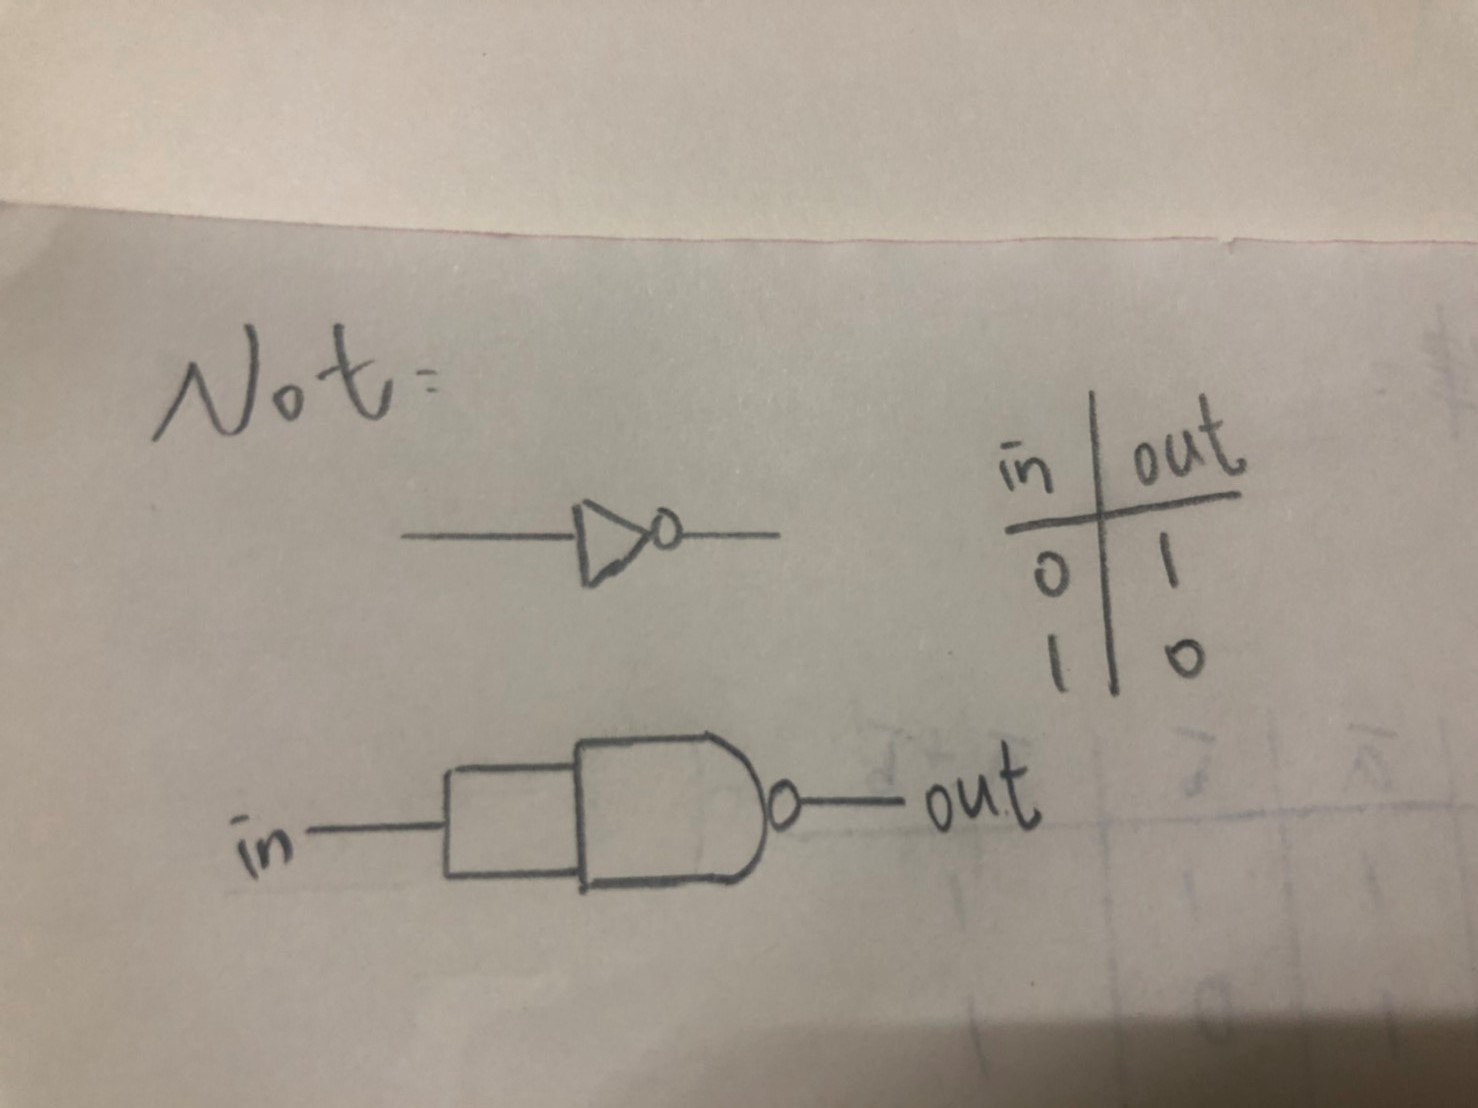 Not:
in out
0 1
1 0
in out